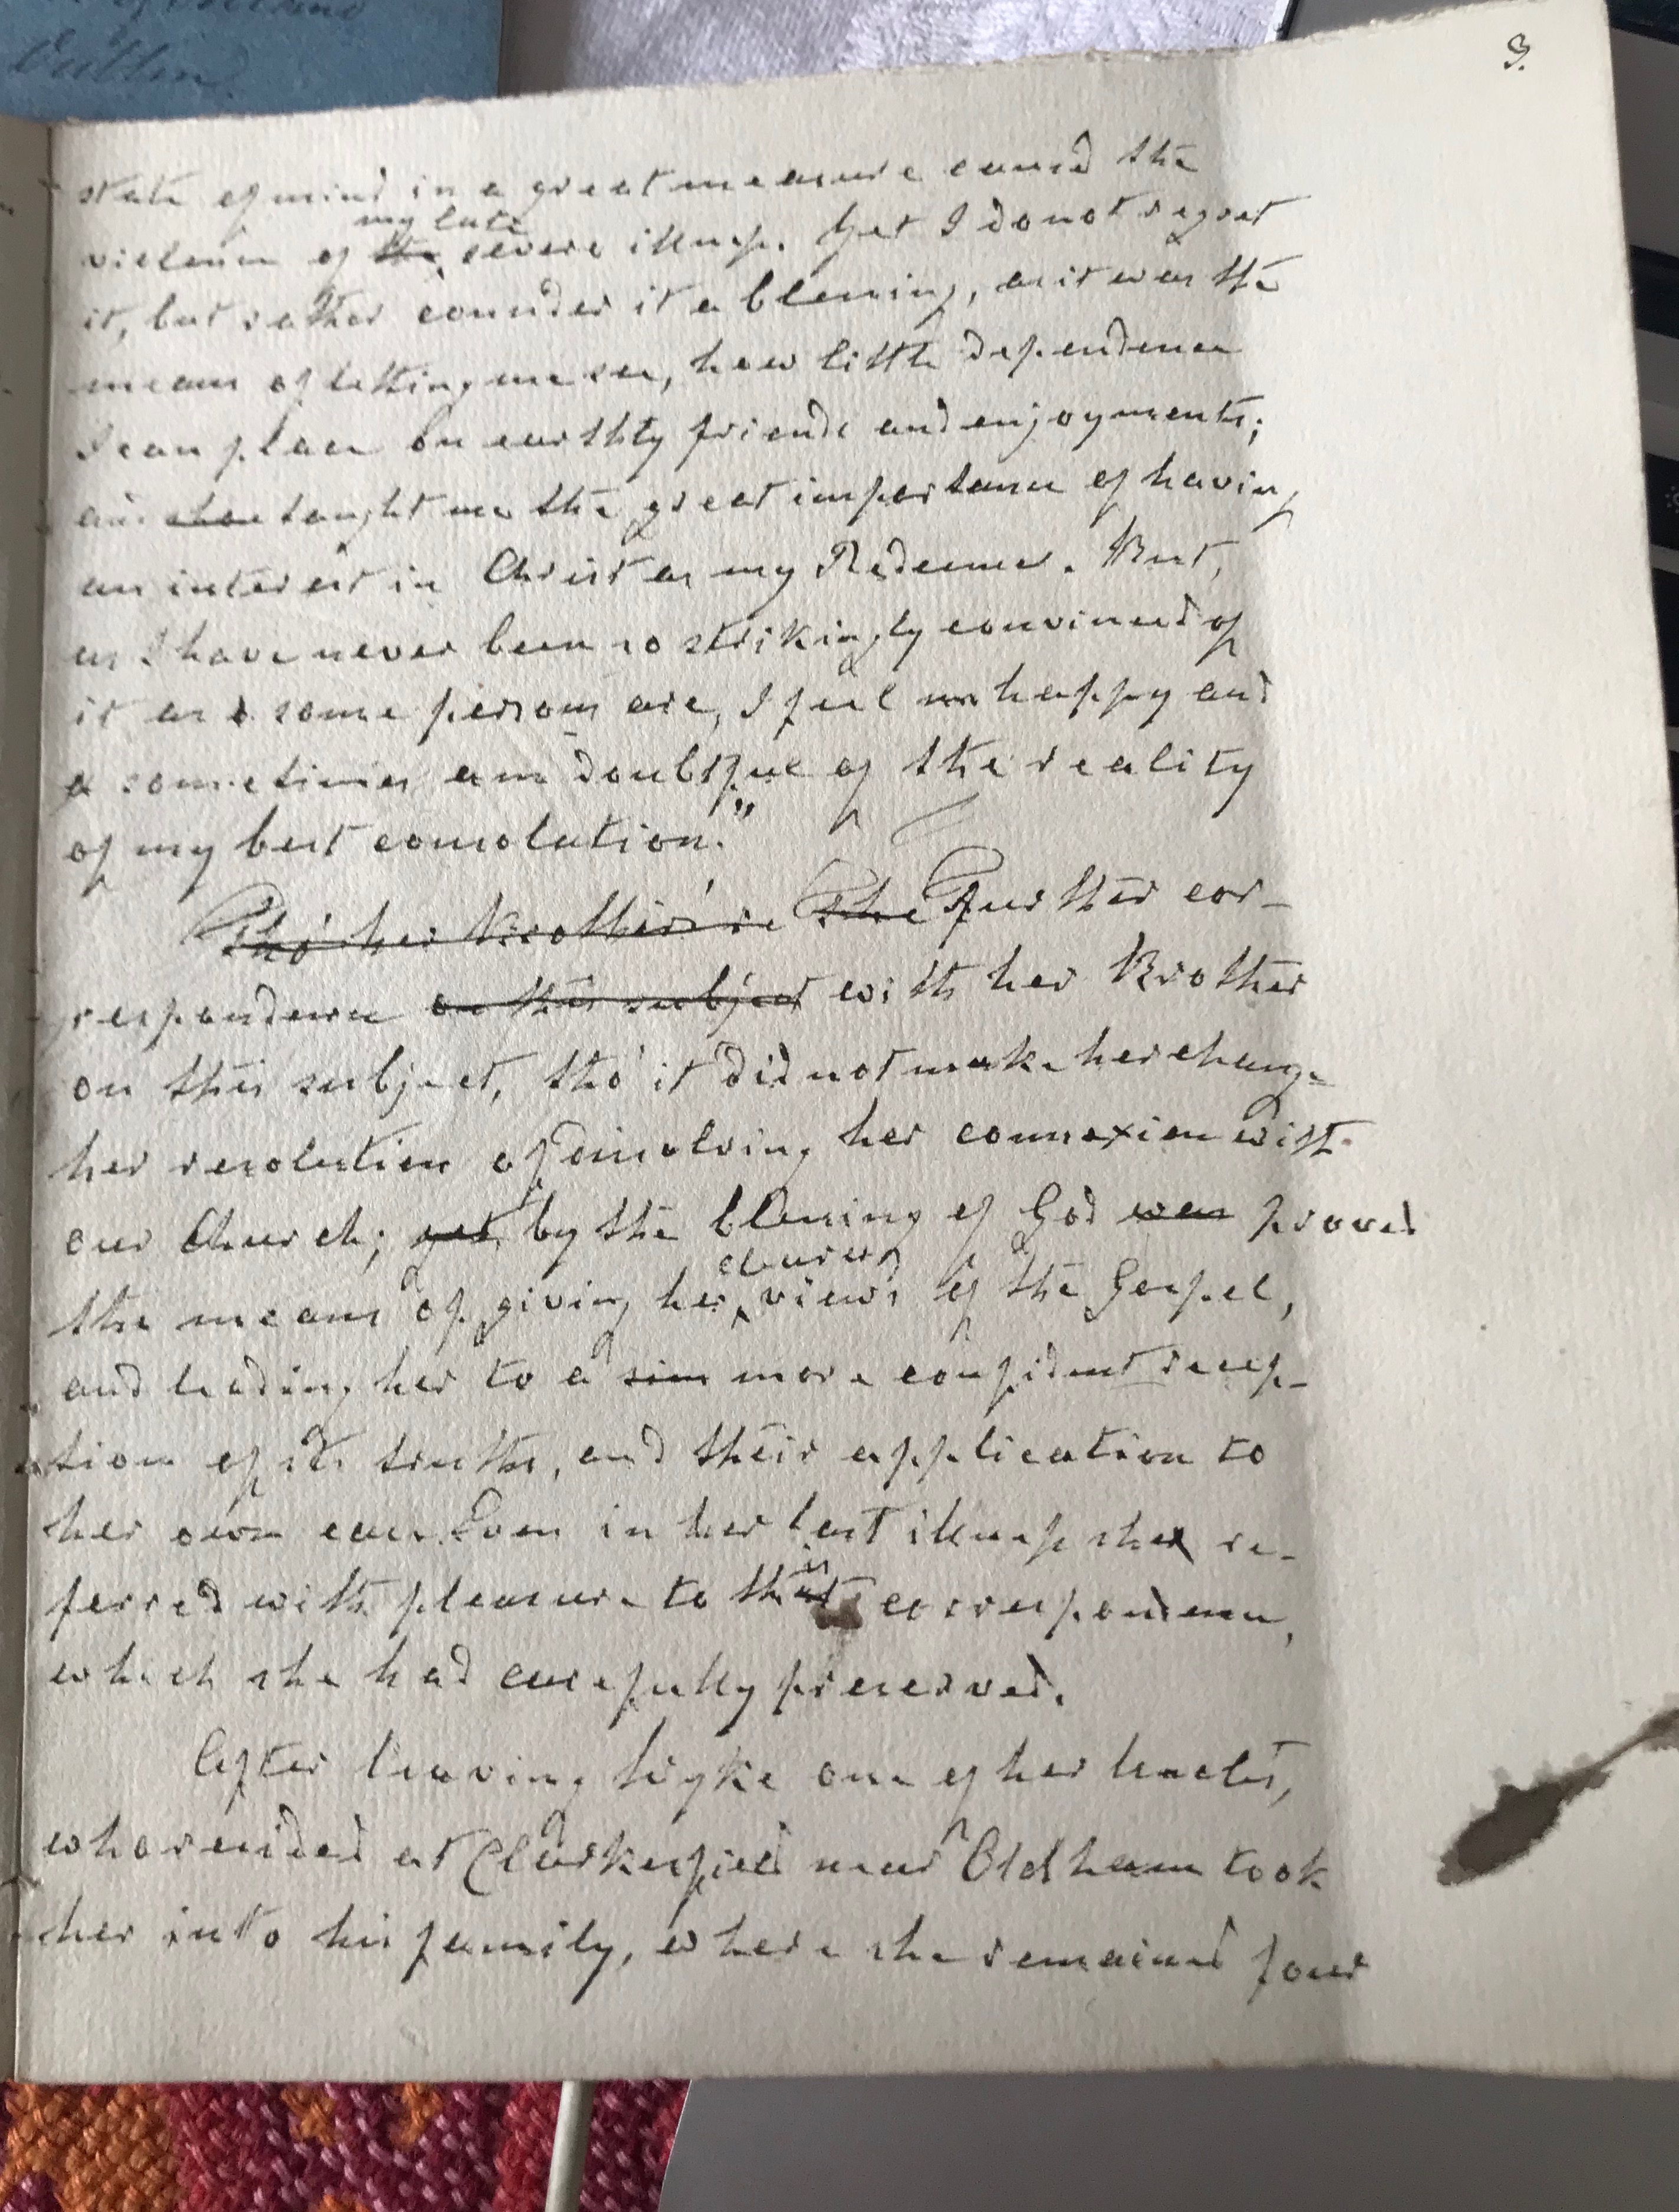 Dublin
3.
state of mind in a great measure caused the
my late
violence of the severe illness. Yet I do not regret
it, but rather consider it a blessing, as it was the
means of letting me see, how little dependence
I can place on earthly friends and enjoyments;
and taught me the great importance of having
an interest in Christ as my Redeemer. But,
as I have never been so strikingly convinced of
it as some persons are, I feel unhappy and
sometimes am doubtful of the reality
of my best consolation."
Tho' her Brother's re The Further cor-
respondence on this subject with her Brother
on this subject, tho' it did not make her change
her resolution of dissolving her connexion with
our Church; yet by the blessing of God was proved
the means of giving her views of the Gospel,
clearer
and leading her to a more confident recep-
tion of its truths, and their application to
her own case. Even in her last illness she re-
ferred with pleasure to this correspondence,
which she had carefully preserved.
After leaving Wyke one of her Uncles,
who resided at Clarksfield near Oldham took
her into his family, where she remained four